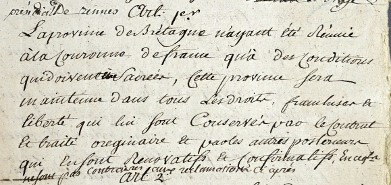 présidial de rennes Art. 1er
La province de Bretagne n'ayant été Réunie
à la Couronne de france qu'à des Conditions
qui doivent Sacrées, Cette province sera
maintenue dans tous les droits, franchises &
liberté qui lui sont Conservés par le Contrat
et traité originaire et par les autres postérieurs
qui en sont Renovatifs et Confirmatifs, En ce qu'ils
ne sont pas contraires aux réclamations cy après
Art 2